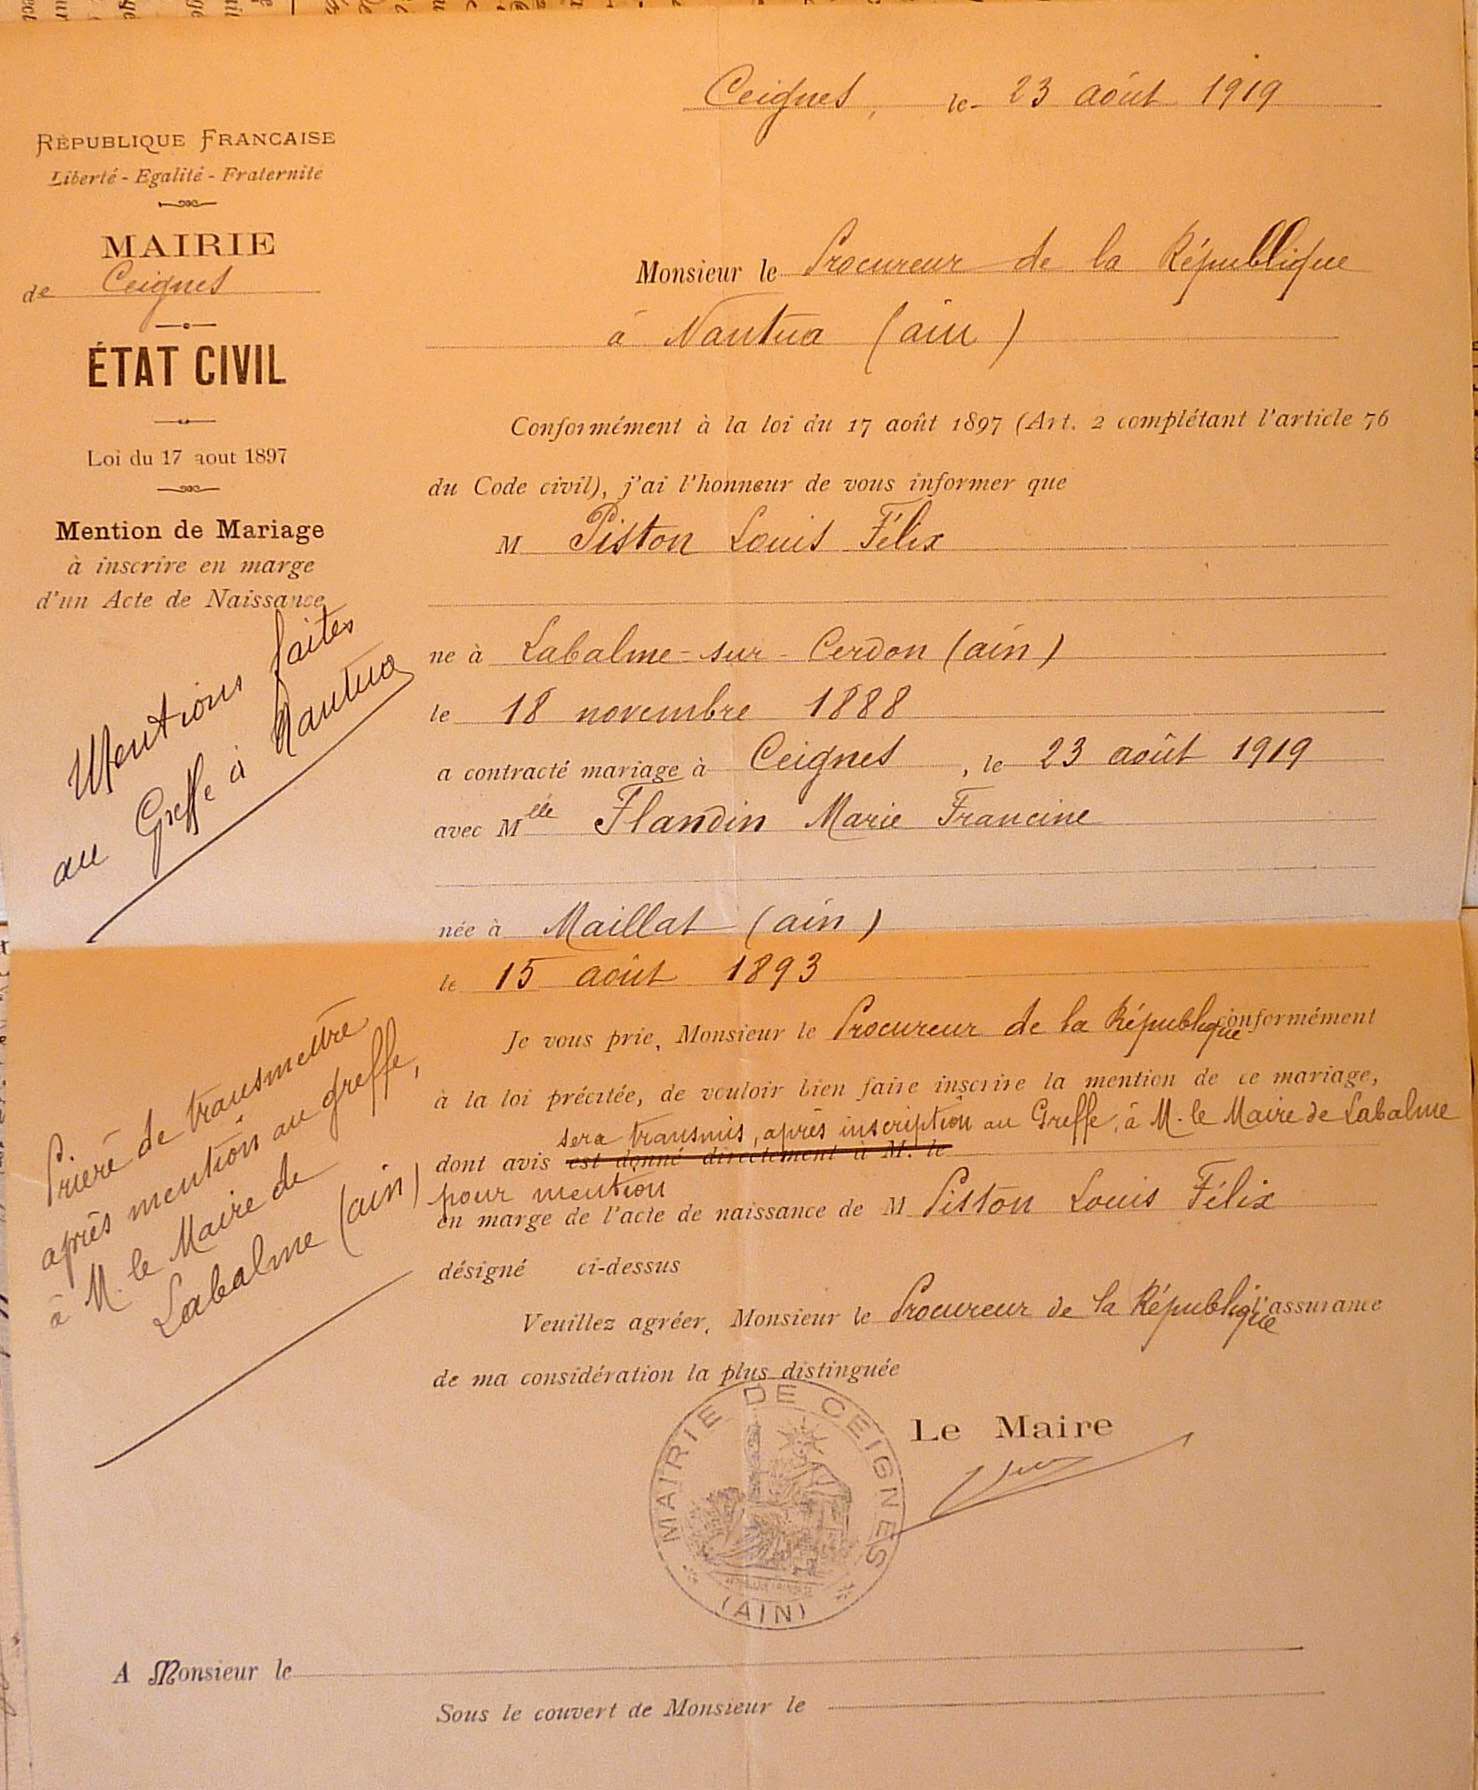 Ceignes, le 23 août 1919
RÉPUBLIQUE FRANCAISE
Liberté - Egalité - Fraternité
MAIRIE
de Ceignes
ÉTAT CIVIL
Loi du 17 aout 1897
Mention de Mariage
à inscrire en marge
d'un Acte de Naissance
Mentions faites
au Greffe à Nantua
Prière de transmettre
après mention au greffe,
à M. le Maire de
Labalme (ain)
Monsieur le Procureur de la République
à Nantua (ain)
Conformément à la loi du 17 août 1897 (Art. 2 complétant l'article 76
du Code civil), j'ai l'honneur de vous informer que
M Piston Louis Félix
né à Labalme-sur-Cerdon (ain)
le 18 novembre 1888
a contracté mariage à Ceignes, le 23 août 1919
avec Melle Flandin Marie Francine
née à Maillat (ain)
le 15 août 1893
Je vous prie, Monsieur le Procureur de la République conformément
à la loi précitée, de vouloir bien faire inscrire la mention de ce mariage,
sera transmis, après inscription au Greffe, à M. le Maire de Labalme
dont avis est donné directement à M. le
pour mention
en marge de l'acte de naissance de M Piston Louis Félix
désigné ci-dessus
Veuillez agréer, Monsieur le Procureur de la République l'assurance
de ma considération la plus distinguée
Le Maire
MAIRIE DE CEIGNES
(AIN)
A Monsieur le
Sous le couvert de Monsieur le